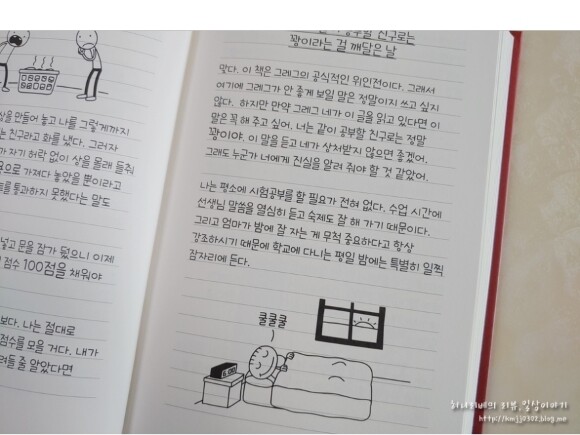 상을 만들어 놓고 나를 그렇게까지
친구라고 화를 냈다. 그러자
자기 허락 없이 상을 몰래 들춰
으로 가져다 놓았을 뿐이라고
통과하지 못했다는 말도
넣고 문을 잠가 뒀으니 이제
점수 100점을 채워야
보다. 나는 절대로
점수를 모을 거다. 내가
줄 알았다면
친구로는
꽝이라는 걸 깨달은 날
맞다. 이 책은 그레그의 공식적인 위인전이다. 그래서
여기에 그레그가 안 좋게 보일 말은 정말이지 쓰고 싶지
않다. 하지만 만약 그레그 네가 이 글을 읽고 있다면 이
말은 꼭 해 주고 싶어. 너는 같이 공부할 친구로는 정말
꽝이야. 이 말을 듣고 네가 상처받지 않으면 좋겠어.
그래도 누군가 너에게 진실을 알려 줘야 할 것 같았어.
나는 평소에 시험공부를 할 필요가 전혀 없다. 수업 시간에
선생님 말씀을 열심히 듣고 숙제도 잘 해 가기 때문이다.
그리고 엄마가 밤에 잘 자는 게 무척 중요하다고 항상
강조하시기 때문에 학교에 다니는 평일 밤에는 특별히 일찍
잠자리에 든다.
쿨쿨쿨
http://hmjj0302.blog.me